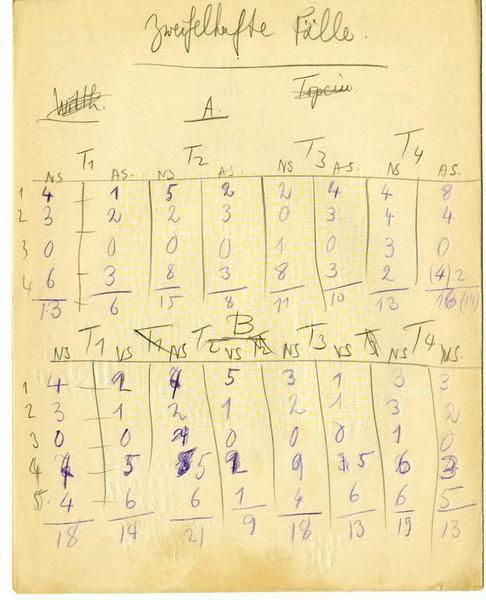 Zweifelhafte Fälle.
A.
T1 T2 T3 T4
NS AS. NS AS. NS AS. NS AS.
1 4 1 5 2 2 4 4 8
2 3 2 2 3 0 3 4 4
3 0 0 0 0 1 0 3 0
4 6 3 8 3 8 3 2 (4) 2
13 6 15 8 11 10 13 (14)
B
T1 T2 T3 T4
NS VS NS VS NS VS NS VS.
1 4 2 4 5 3 1 3 3
2 3 1 2 1 2 1 3 2
3 0 0 0 0 0 1 0
4 5 5 9 5 6 3
5. 4 6 6 1 4 6 6 5
18 14 21 9 18 13 19 13